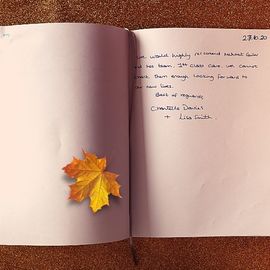 27.10.20
We would highly recommend Mehmet
and his team. 1st class care. we cannot
thank them enough looking forward to
our new lives.
Best of regards,
Chantelle Davies
+ Lisa Smith.